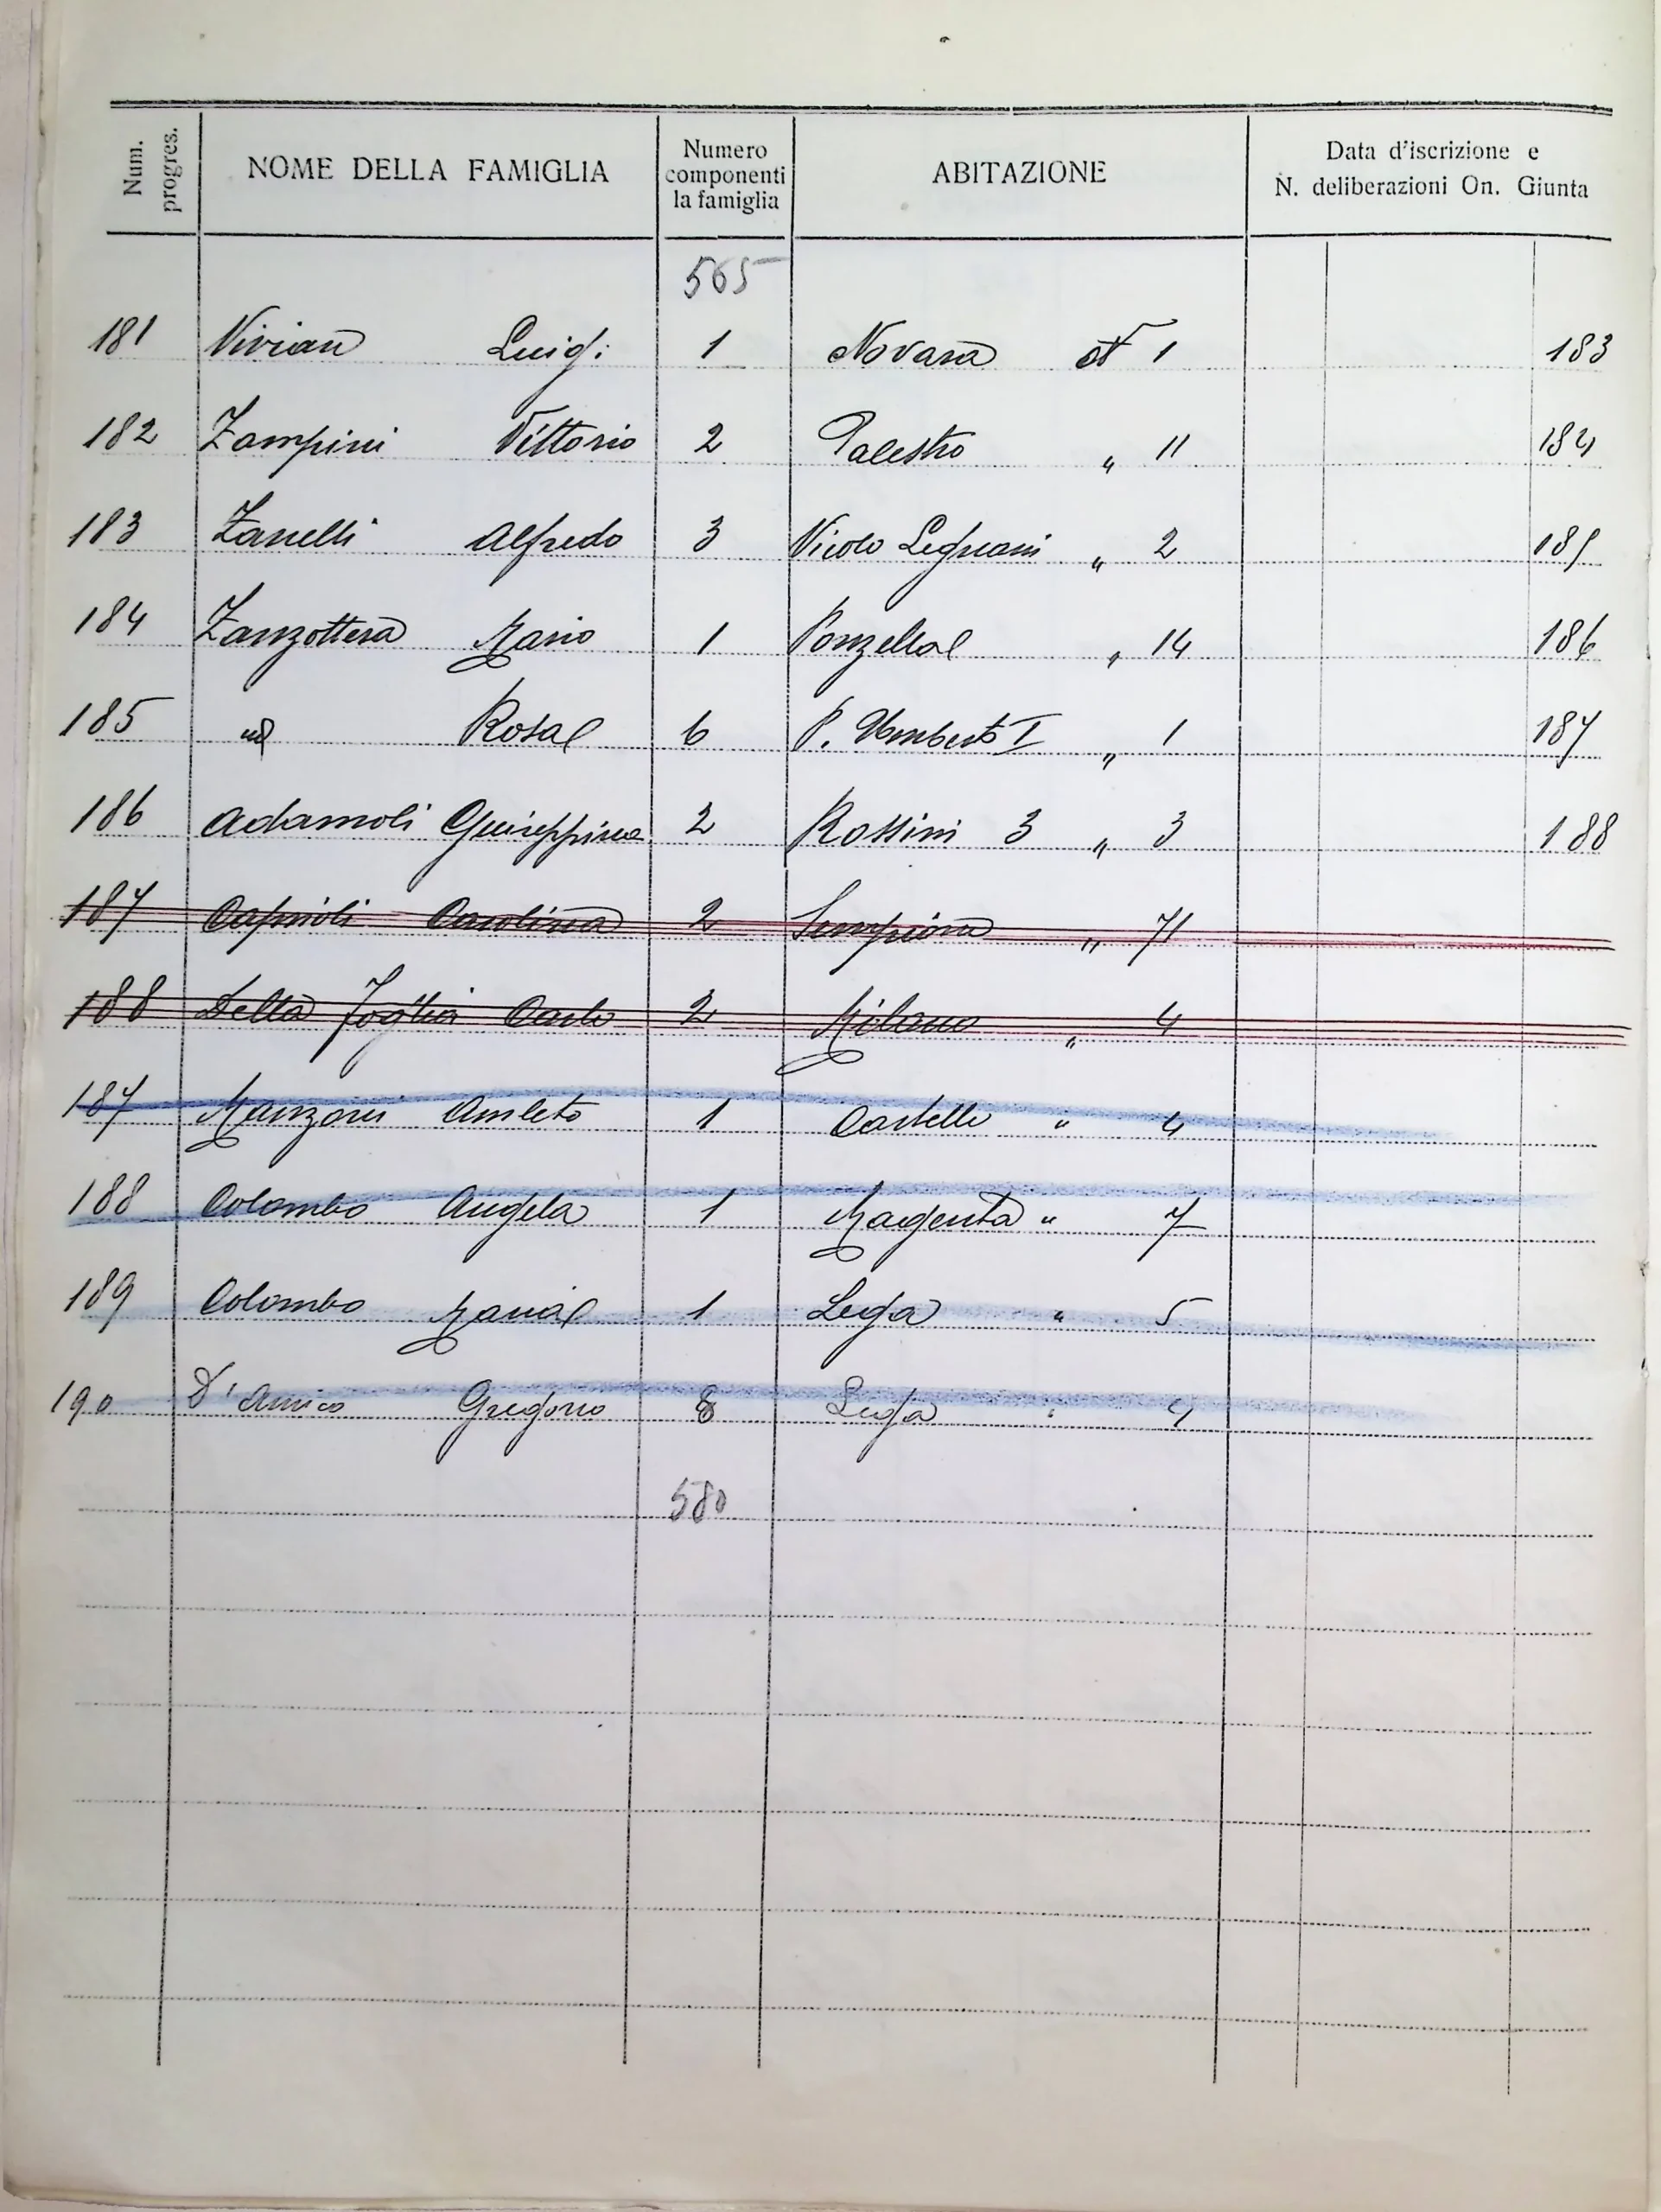 Num. progres. NOME DELLA FAMIGLIA Numero componenti la famiglia ABITAZIONE Data d'iscrizione e N. deliberazioni On. Giunta
565
181 Vivian Luigi 1 Novara N 1 183
182 Zampini Vittorio 2 Palestro " 11 184
183 Zanelli Alfredo 3 Vicolo Legnani " 2 185
184 Zanzottera Mario 1 Ponzella " 14 186
185 id Rosa 6 P. Umberto I " 1 187
186 Adamoli Giuseppina 2 Rossini 3 " 3 188
187 Caprioli Carolina 2 Sempione " 71
188 Della Foglia Carlo 2 Milano " 4
187 Manzoni Amleto 1 Castello " 4
188 Colombo Angela 1 Magenta " 7
189 Colombo Maria 1 Lega " 5
190 D'Amico Gregorio 8 Lega " 4
580